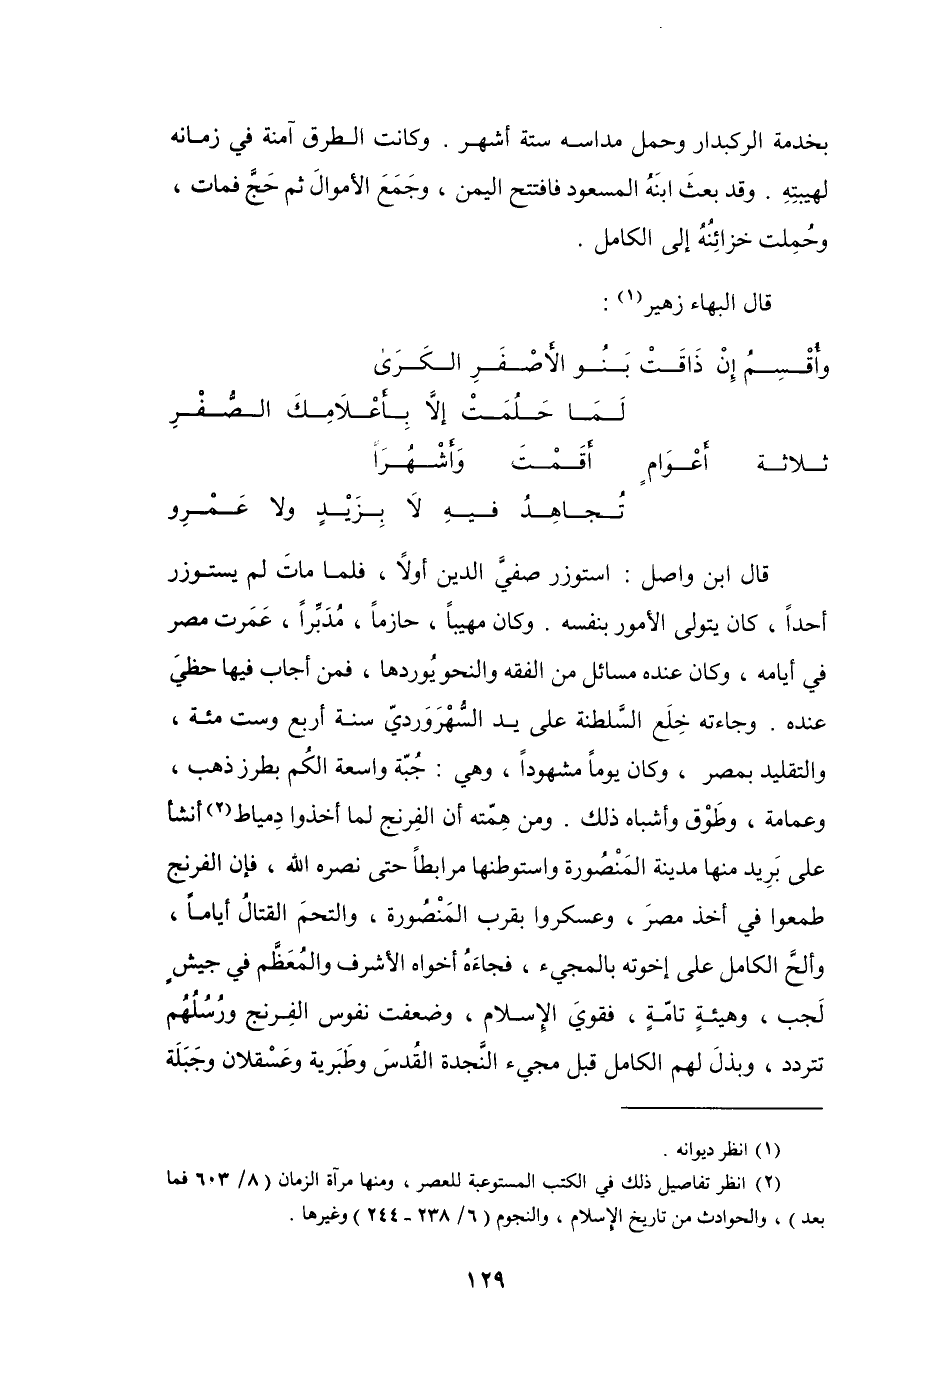 بخدمة الركبدار وحمل مداسه ستة أشهر . وكانت الطرق آمنة في زمانه
لهيبتِهِ . وقد بعثَ ابنَهُ المسعود فافتتح اليمن ، وجَمَعَ الأموالَ ثم حَجَّ فمات ،
وحُمِلت خزائِنُهُ إلى الكامل .
قال البهاء زهير(١) :
وأُقْسِمُ إِنْ ذَاقَتْ بَنُو الأَصْفَرِ الكَرَىٰ
لَمَا حَلُمَتْ إلَّا بِأَعْلَامِكَ الصُّفْرِ
ثلاثة أَعْوَامٍ أَقَمْتَ وَأَشْهُرَاً
تُجاهِدُ فيهِ لَا بِزَيْدٍ ولا عَمْرِو
قال ابن واصل : استوزر صفيَّ الدين أولًا ، فلما ماتَ لم يستوزر
أحداً ، كان يتولى الأمور بنفسه . وكان مهيباً ، حازماً ، مُدَبِّراً ، عَمَرت مصر
في أيامه ، وكان عنده مسائل من الفقه والنحو يُوردها ، فمن أجاب فيها حظيَ
عنده . وجاءته خِلَع السَّلطنة على يد السُّهْرَوَرديّ سنة أربع وست مئة ،
والتقليد بمصر ، وكان يوماً مشهوداً ، وهي : جُبّة واسعة الكُم بطرز ذهب ،
وعمامة ، وطَوْق وأشباه ذلك . ومن هِمّته أن الفِرنج لما أخذوا دِمياط(٢) أنشأ
على بَرِيد منها مدينة المَنْصُورة واستوطنها مرابطاً حتى نصره الله ، فإن الفرنج
طمعوا في أخذ مصرَ ، وعسكروا بقرب المَنْصُورة ، والتحمَ القتالُ أياماً ،
وألحَّ الكامل على إخوته بالمجيء ، فجاءَهُ أخواه الأشرف والمُعَظَّم في جيشٍ
لَجب ، وهيئةٍ تامّةٍ ، فقويَ الإسلام ، وضعفت نفوس الفِرنج ورُسُلُهُم
تتردد ، وبذلَ لهم الكامل قبل مجيء النَّجدة القُدسَ وطَبَرية وعَسْقلان وجَبَلَة
(١) انظر ديوانه .
(٢) انظر تفاصيل ذلك في الكتب المستوعبة للعصر ، ومنها مرآة الزمان ( ٨/ ٦٠٣ فما
بعد ) ، والحوادث من تاريخ الإسلام ، والنجوم ( ٦/ ٢٣٨ - ٢٤٤ ) وغيرها .
١٢٩